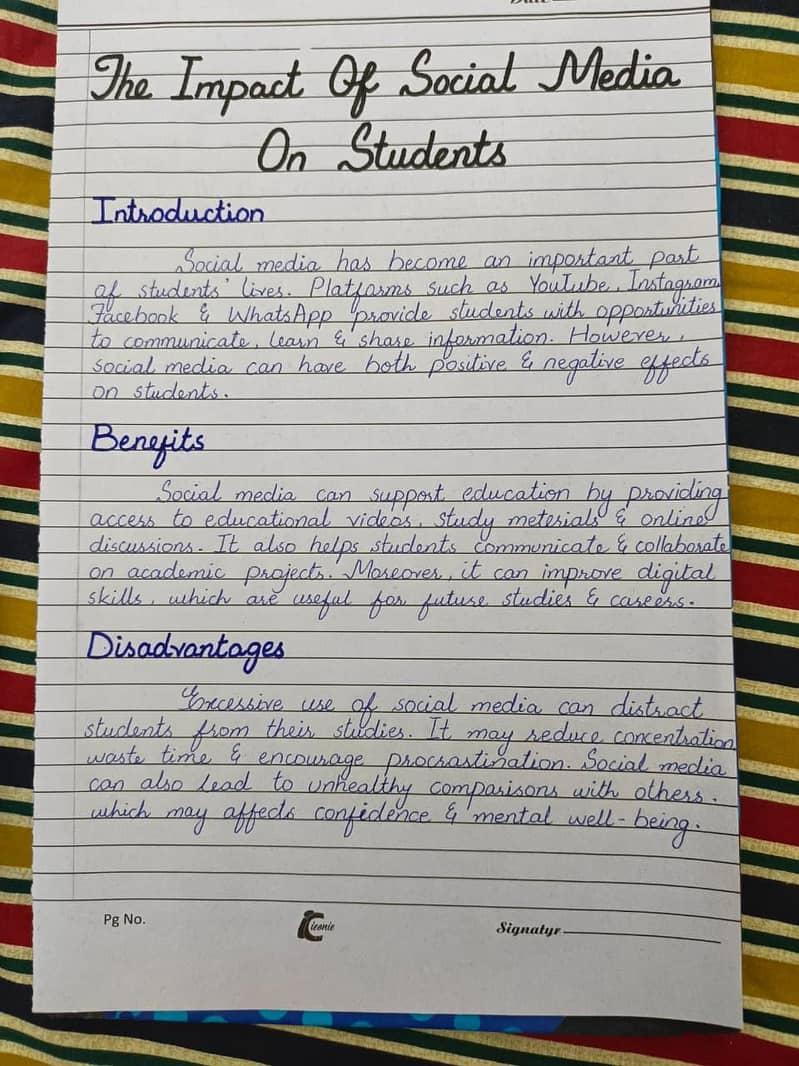 The Impact Of Social Media
On Students
Introduction
Social media has become an important part
of students' lives. Platforms such as YouTube, Instagram,
Facebook & WhatsApp provide students with opportunities
to communicate, learn & share information. However,
social media can have both positive & negative effects
on students.
Benefits
Social media can support education by providing
access to educational videos, study meterials & online
discussions. It also helps students communicate & collaborate
on academic projects. Moreover, it can improve digital
skills, which are useful for future studies & careers.
Disadvantages
Excessive use of social media can distract
students from their studies. It may reduce concentration,
waste time & encourage procrastination. Social media
can also lead to unhealthy comparisons with others.
which may affects confidence & mental well-being.
Pg No.
iconic
Signatyr